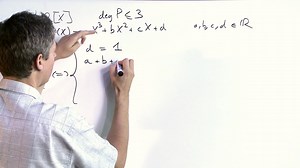 R[X] deg P ≤ 3
(X) = x³ + bX² + cX + d a,b,c,d ∈ ℝ
d = 1
a + b +